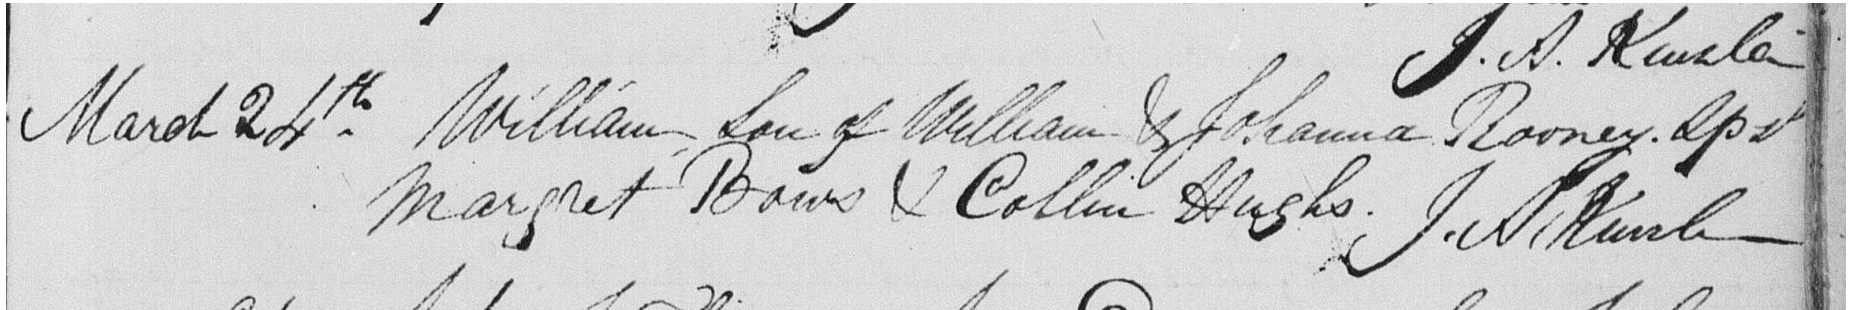 J. A. Kinsla
March 24th William, Son of William & Johanna Rooney. Sps
Margret Bows & Collin Hughs. J. A Kinsla